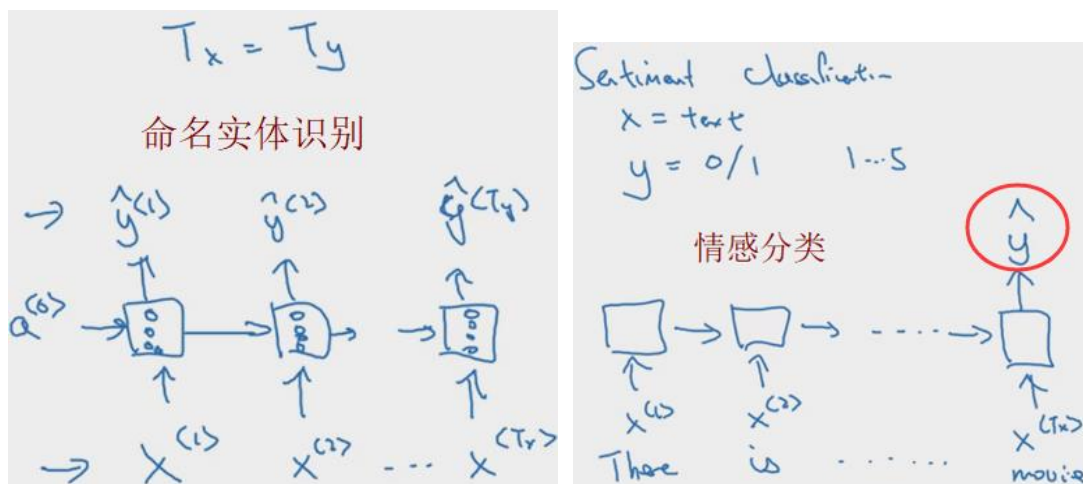 Tx = Ty
命名实体识别
→ ŷ<1> ŷ<2> ŷ<Ty>
a<0>
→ x<1> x<2> ... x<Tx>
Sentiment Classification
x = text
y = 0/1 1...5
情感分类
ŷ
x<1> x<2> x<Tx>
There is ...... movie